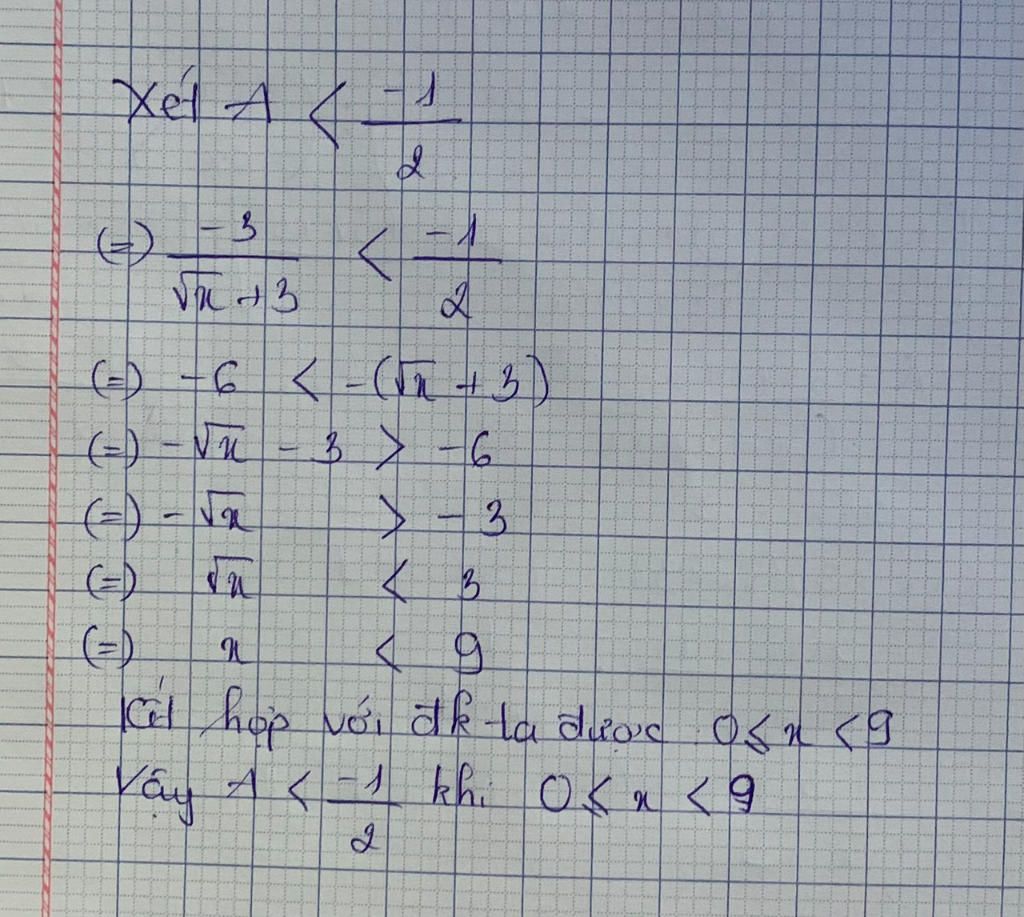 Xét A < -1/2
(=) -3/(√x + 3) < -1/2
(=) -6 < -(√x + 3)
(=) -√x - 3 > -6
(=) -√x > -3
(=) √x < 3
(=) x < 9
Kết hợp với đk ta được 0 ≤ x < 9
Vậy A < -1/2 khi 0 ≤ x < 9